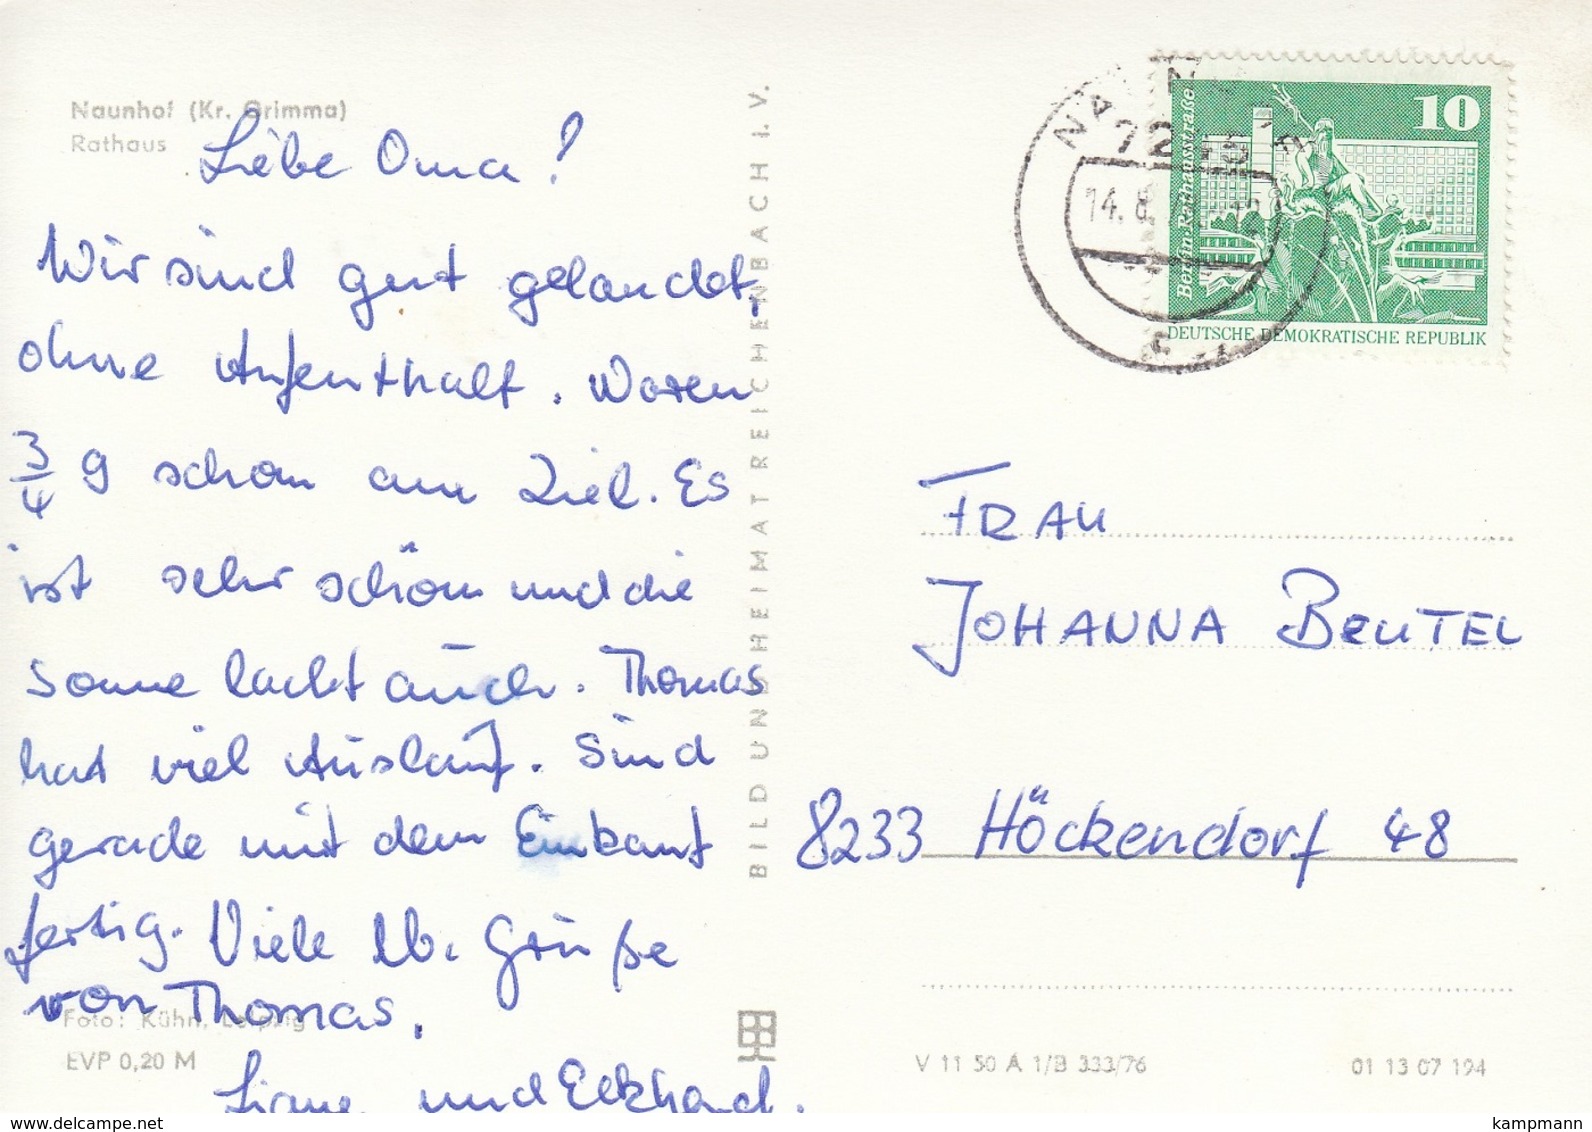 Naunhof (Kr. Grimma)
Rathaus
Liebe Oma!
Wir sind gut gelandet,
ohne Aufenthalt. Waren
3/4 9 schon am Ziel. Es
ist sehr schön und die
Sonne lacht auch. Thomas
hat viel Auslauf. Sind
gerade mit dem Einkauf
fertig. Viele lb. Grüße
von Thomas,
Liane und Eckhard.
Foto: Kühn, Leipzig
EVP 0,20 M
BILD UND HEIMAT REICHENBACH I. V.
10
Berlin Rathausstraße
DEUTSCHE DEMOKRATISCHE REPUBLIK
14.8.
FRAU
JOHANNA BEUTEL
8233 Höckendorf 48
V 11 50 A 1/B 333/76
01 13 07 194
www.delcampe.net
kampmann